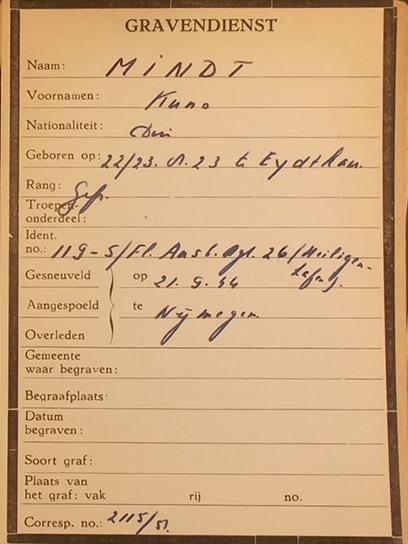 GRAVENDIENST
Naam: MINDT
Voornamen: Kuno
Nationaliteit:
Geboren op: 22/23. 23 te Eydtkau.
Rang: Gefr.
Troepen-
onderdeel:
Ident.
no.: 119-5/Fl. Ausb. Rgt. 26/Heiligen-
hafen).
Gesneuveld op 21.9.44
Aangespoeld te Nijmegen.
Overleden
Gemeente
waar begraven:
Begraafplaats:
Datum
begraven:
Soort graf:
Plaats van
het graf: vak rij no.
Corresp. no.: 2115/51.